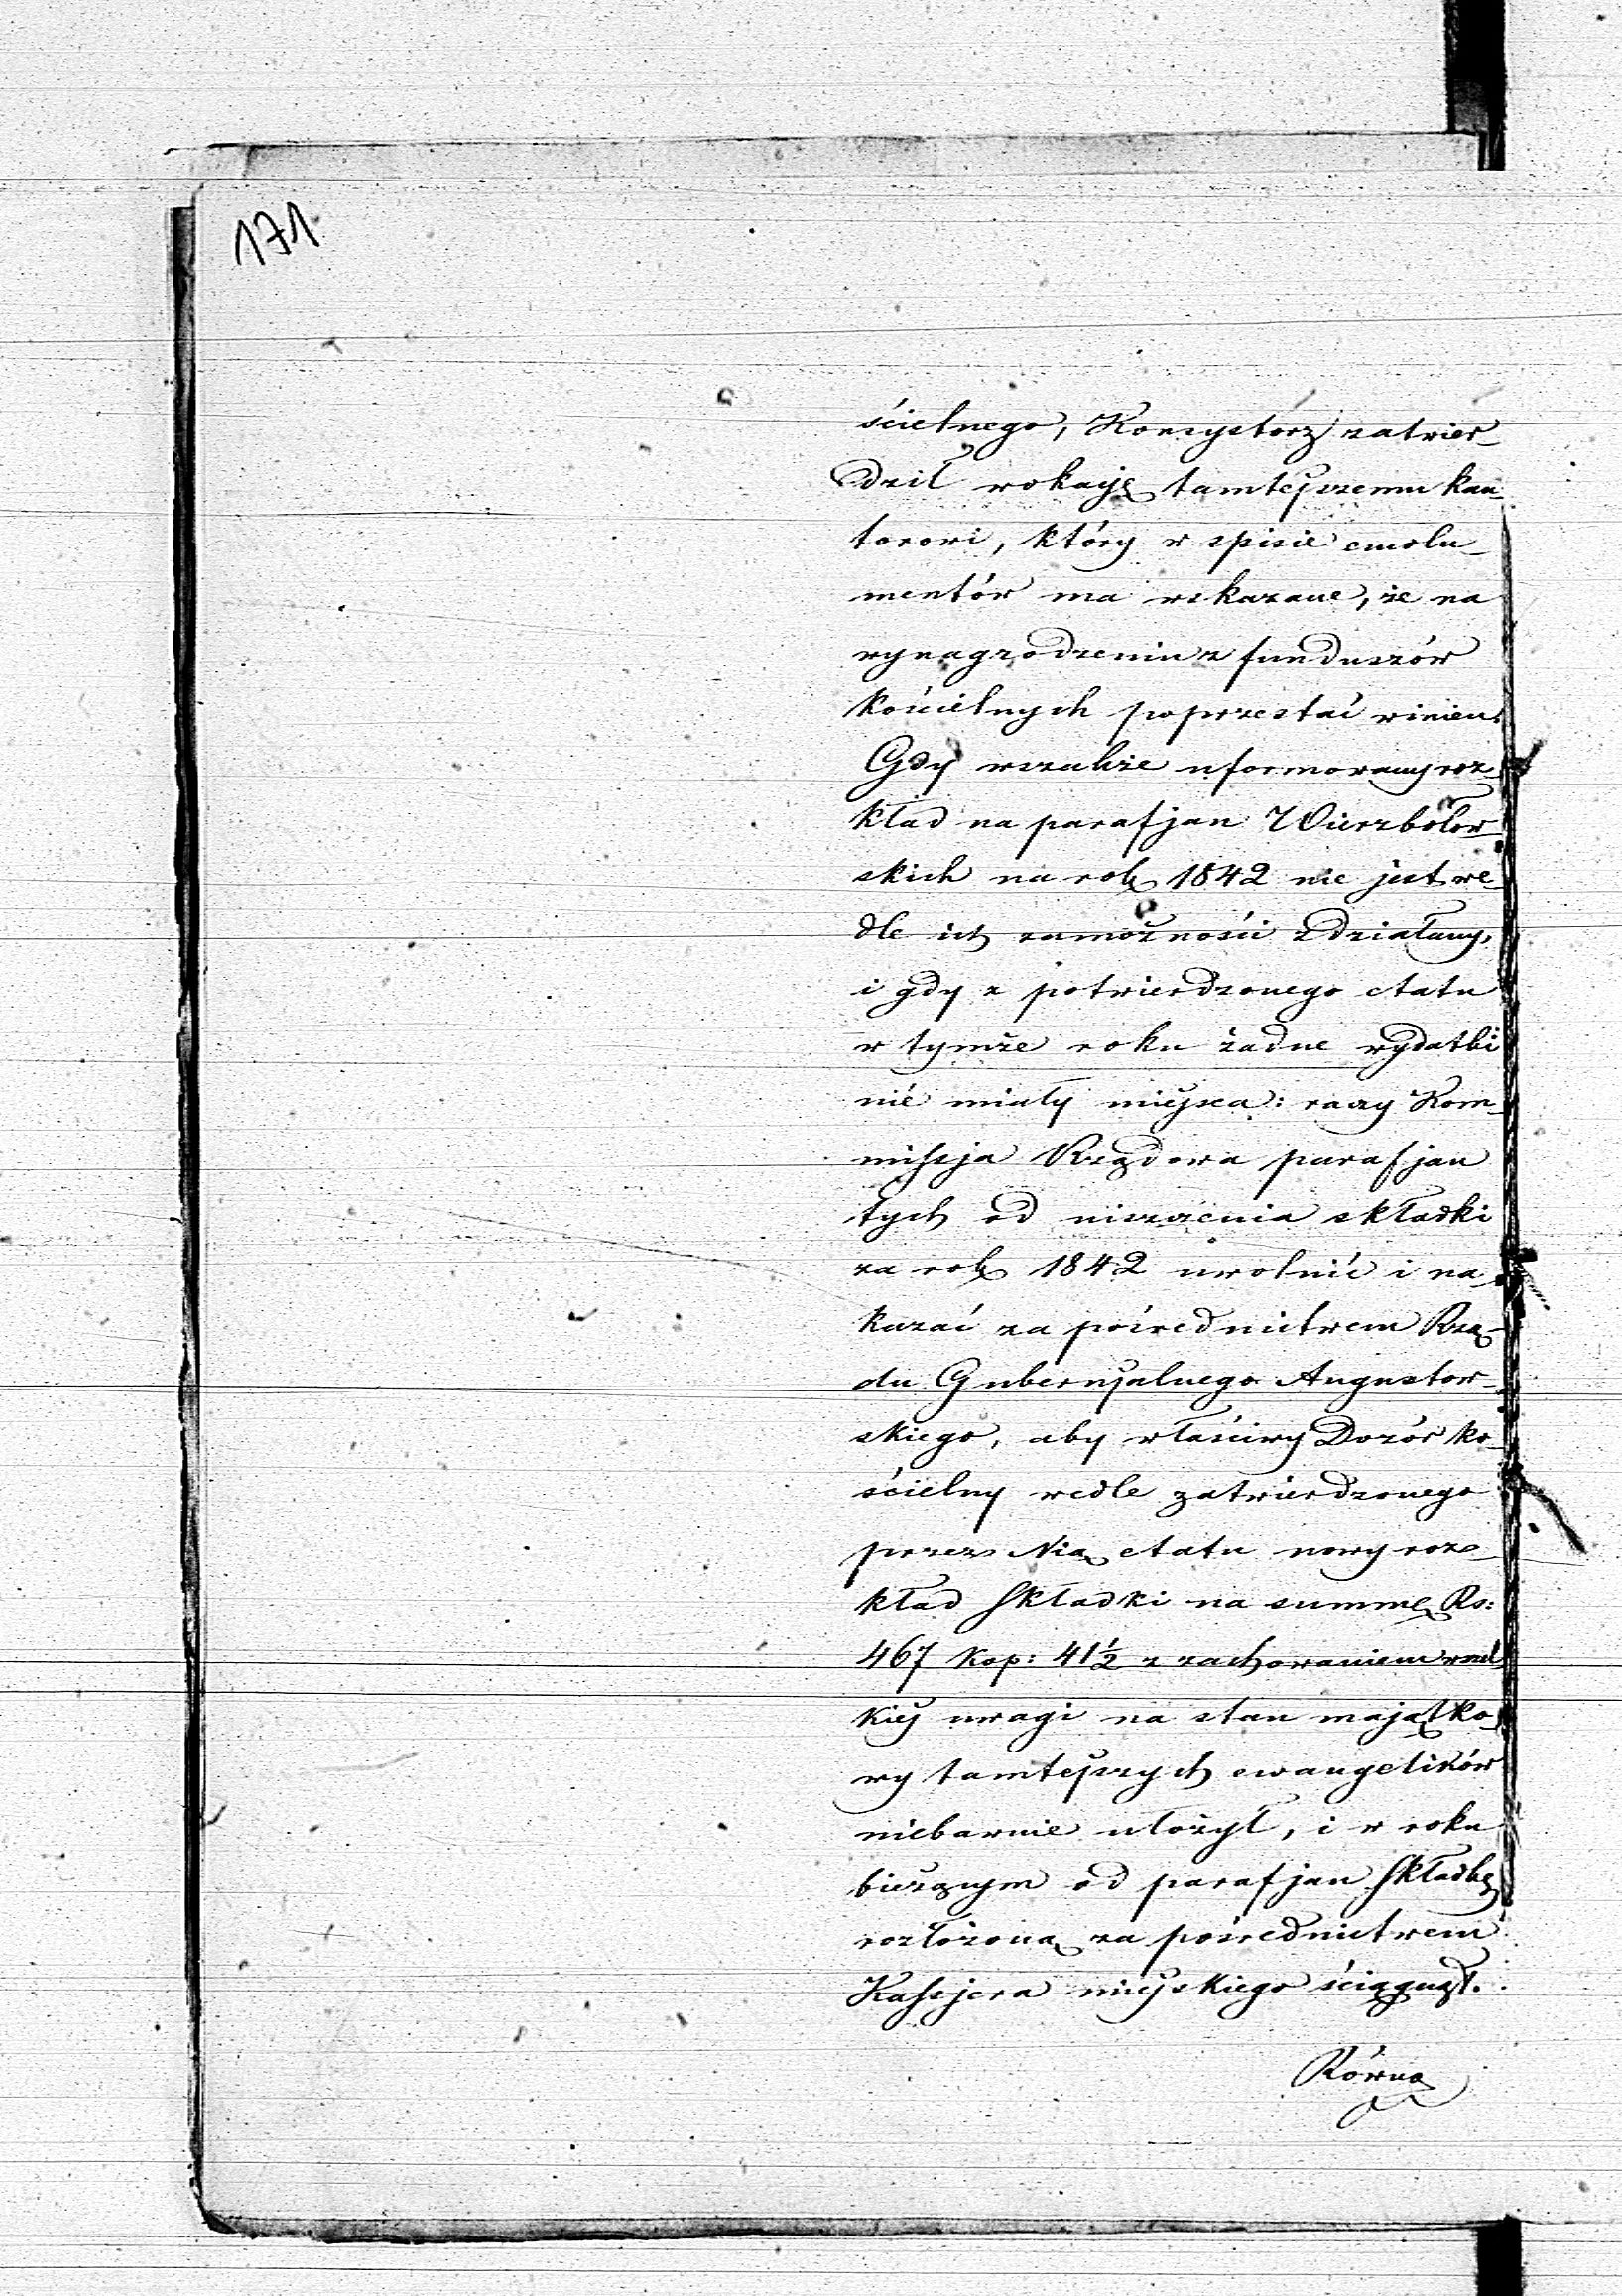 171
ścielnego, Konsystorz zatwier-
dził wokację tamtejszemu kan-
torowi, który w spisie emolu-
mentów ma wskazane, że na
wynagrodzeniu z funduszów
kościelnych poprzestać winien.
Gdy wszakże uformowany roz-
kład na parafjan Wierzbołow-
skich na rok 1842 nie jest we-
dle ich zamożności zdziałany,
i gdy z potwierdzonego etatu
w tymże roku żadne wydatki
nie miały miejsca: raczy Kom-
missja Rządowa parafjan
tych od niszczenia składki
za rok 1842 uwolnić i na-
kazać za pośrednictwem Rzą-
du Gubernjalnego Augustow-
skiego, aby właściwy Dozór ko-
ścielny wedle zatwierdzonego
przez Nią etatu nowy roz-
kład składki na summę Rs:
467 Kop: 41½ z zachowaniem wszel-
kiej uwagi na stan majątko-
wy tamtejszych ewangelików
niebawnie ułożył, i w roku
bieżącym od parafjan składkę
rozłożoną za pośrednictwem
Kassjera miejskiego ściągnął.
Równą